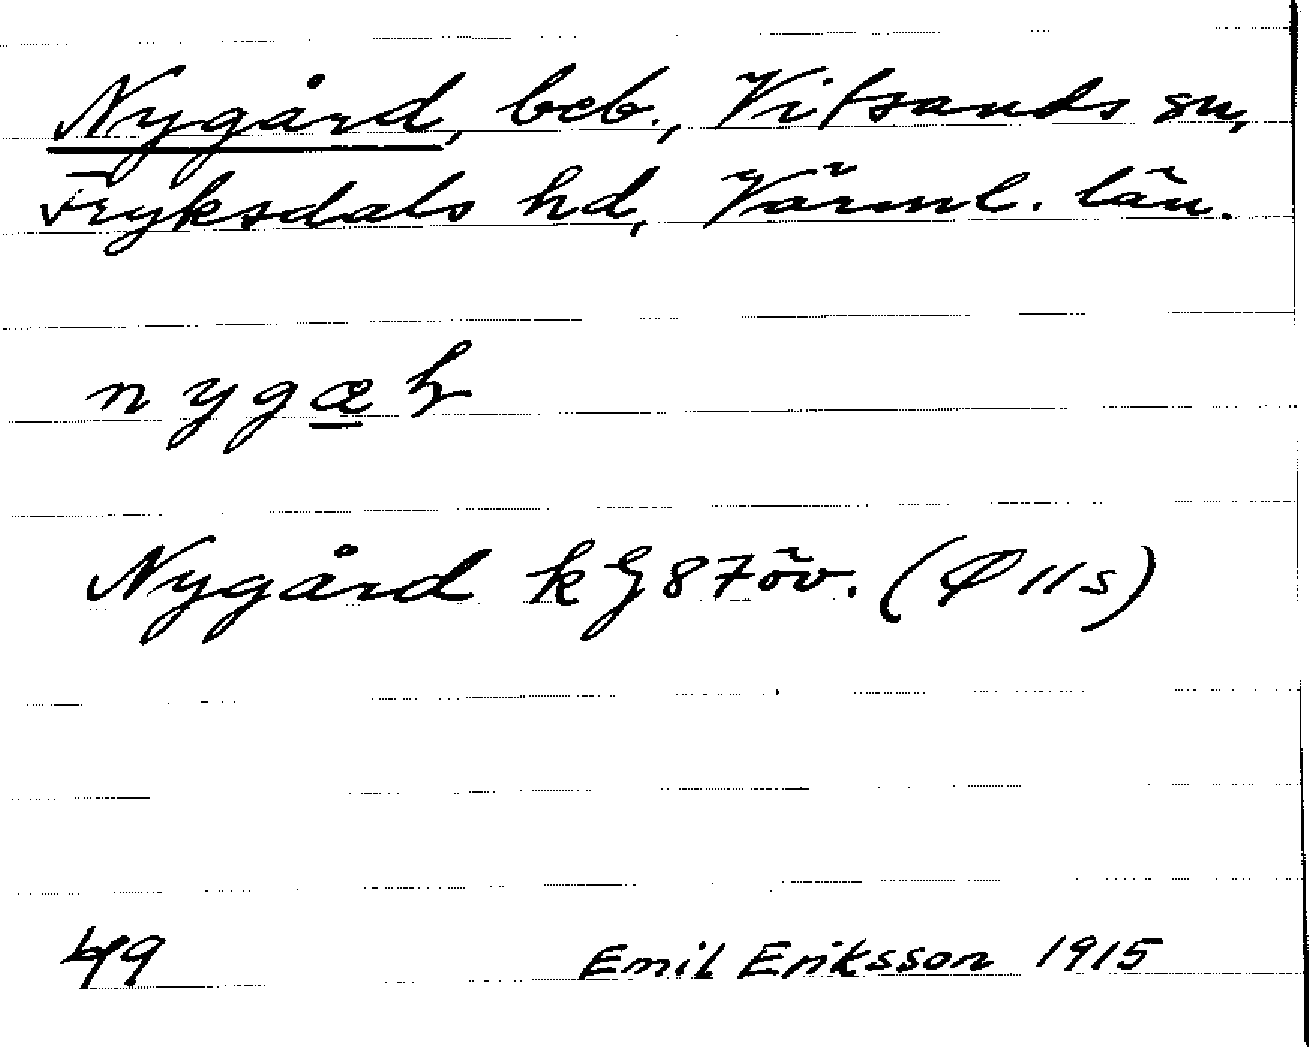 Nygård, beb., Vitsands sn,
Fryksdals hd, Värml. län.
nygæ
Nygård k 87öv. (Ø 11s)
49 Emil Eriksson 1915